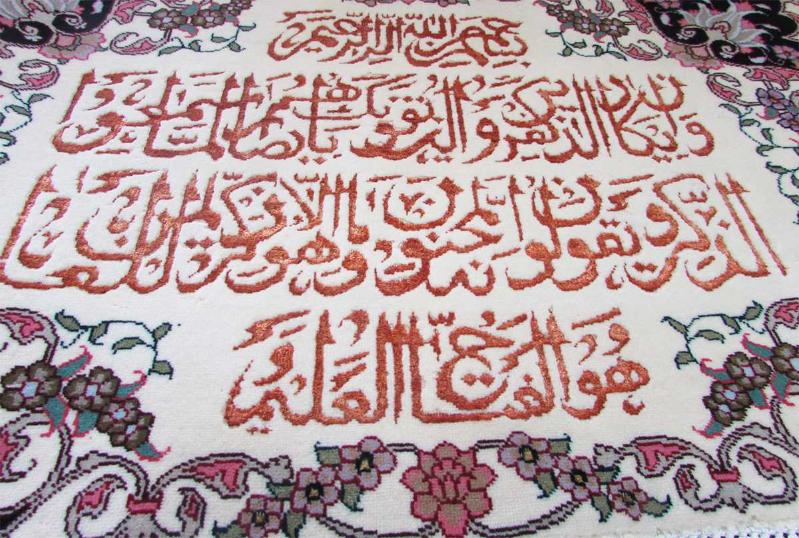 بسم الله الرحمن الرحيم
وإن يكاد الذين كفروا ليزلقونك بأبصارهم لما سمعوا
الذكر ويقولون إنه لمجنون وما هو إلا ذكر للعالمين
هو الفتاح العليم